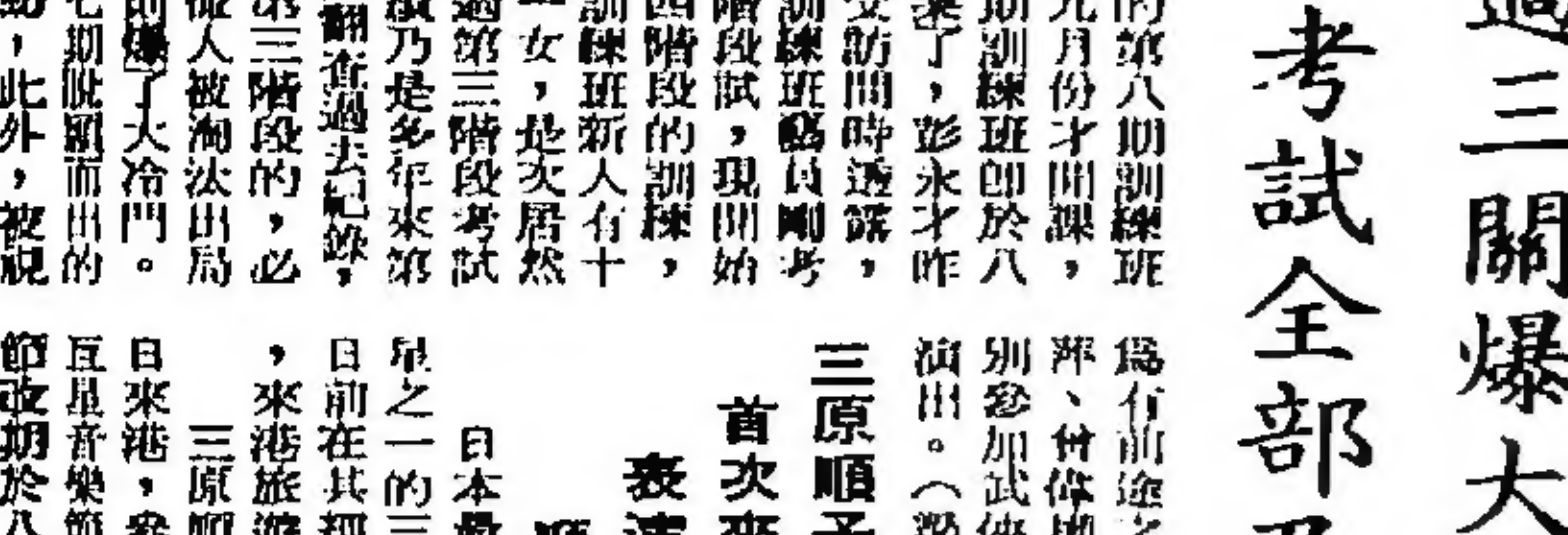 三關爆大
考試全部
的第八期訓練班
九月份才開課，
期訓練班即於八
了，彭永才昨
訪問時透露，
訓練班藝員剛考
階段試，現開始
四階段的訓練，
訓練班新人有十
女，是次居然
過第三階段考試
乃是多年來第
翻查過去紀錄，
第三階段的，必
人被淘汰出局
前爆了大冷門。
七期脫穎而出的
，此外，被視
爲有前途之
萍、曾偉
別參加武俠
演出。（
三原順子
首次來
表演
日本最
星之一的三
日前在其
，來港旅遊
三原順
日來港，
巨星音樂節
節改期於八